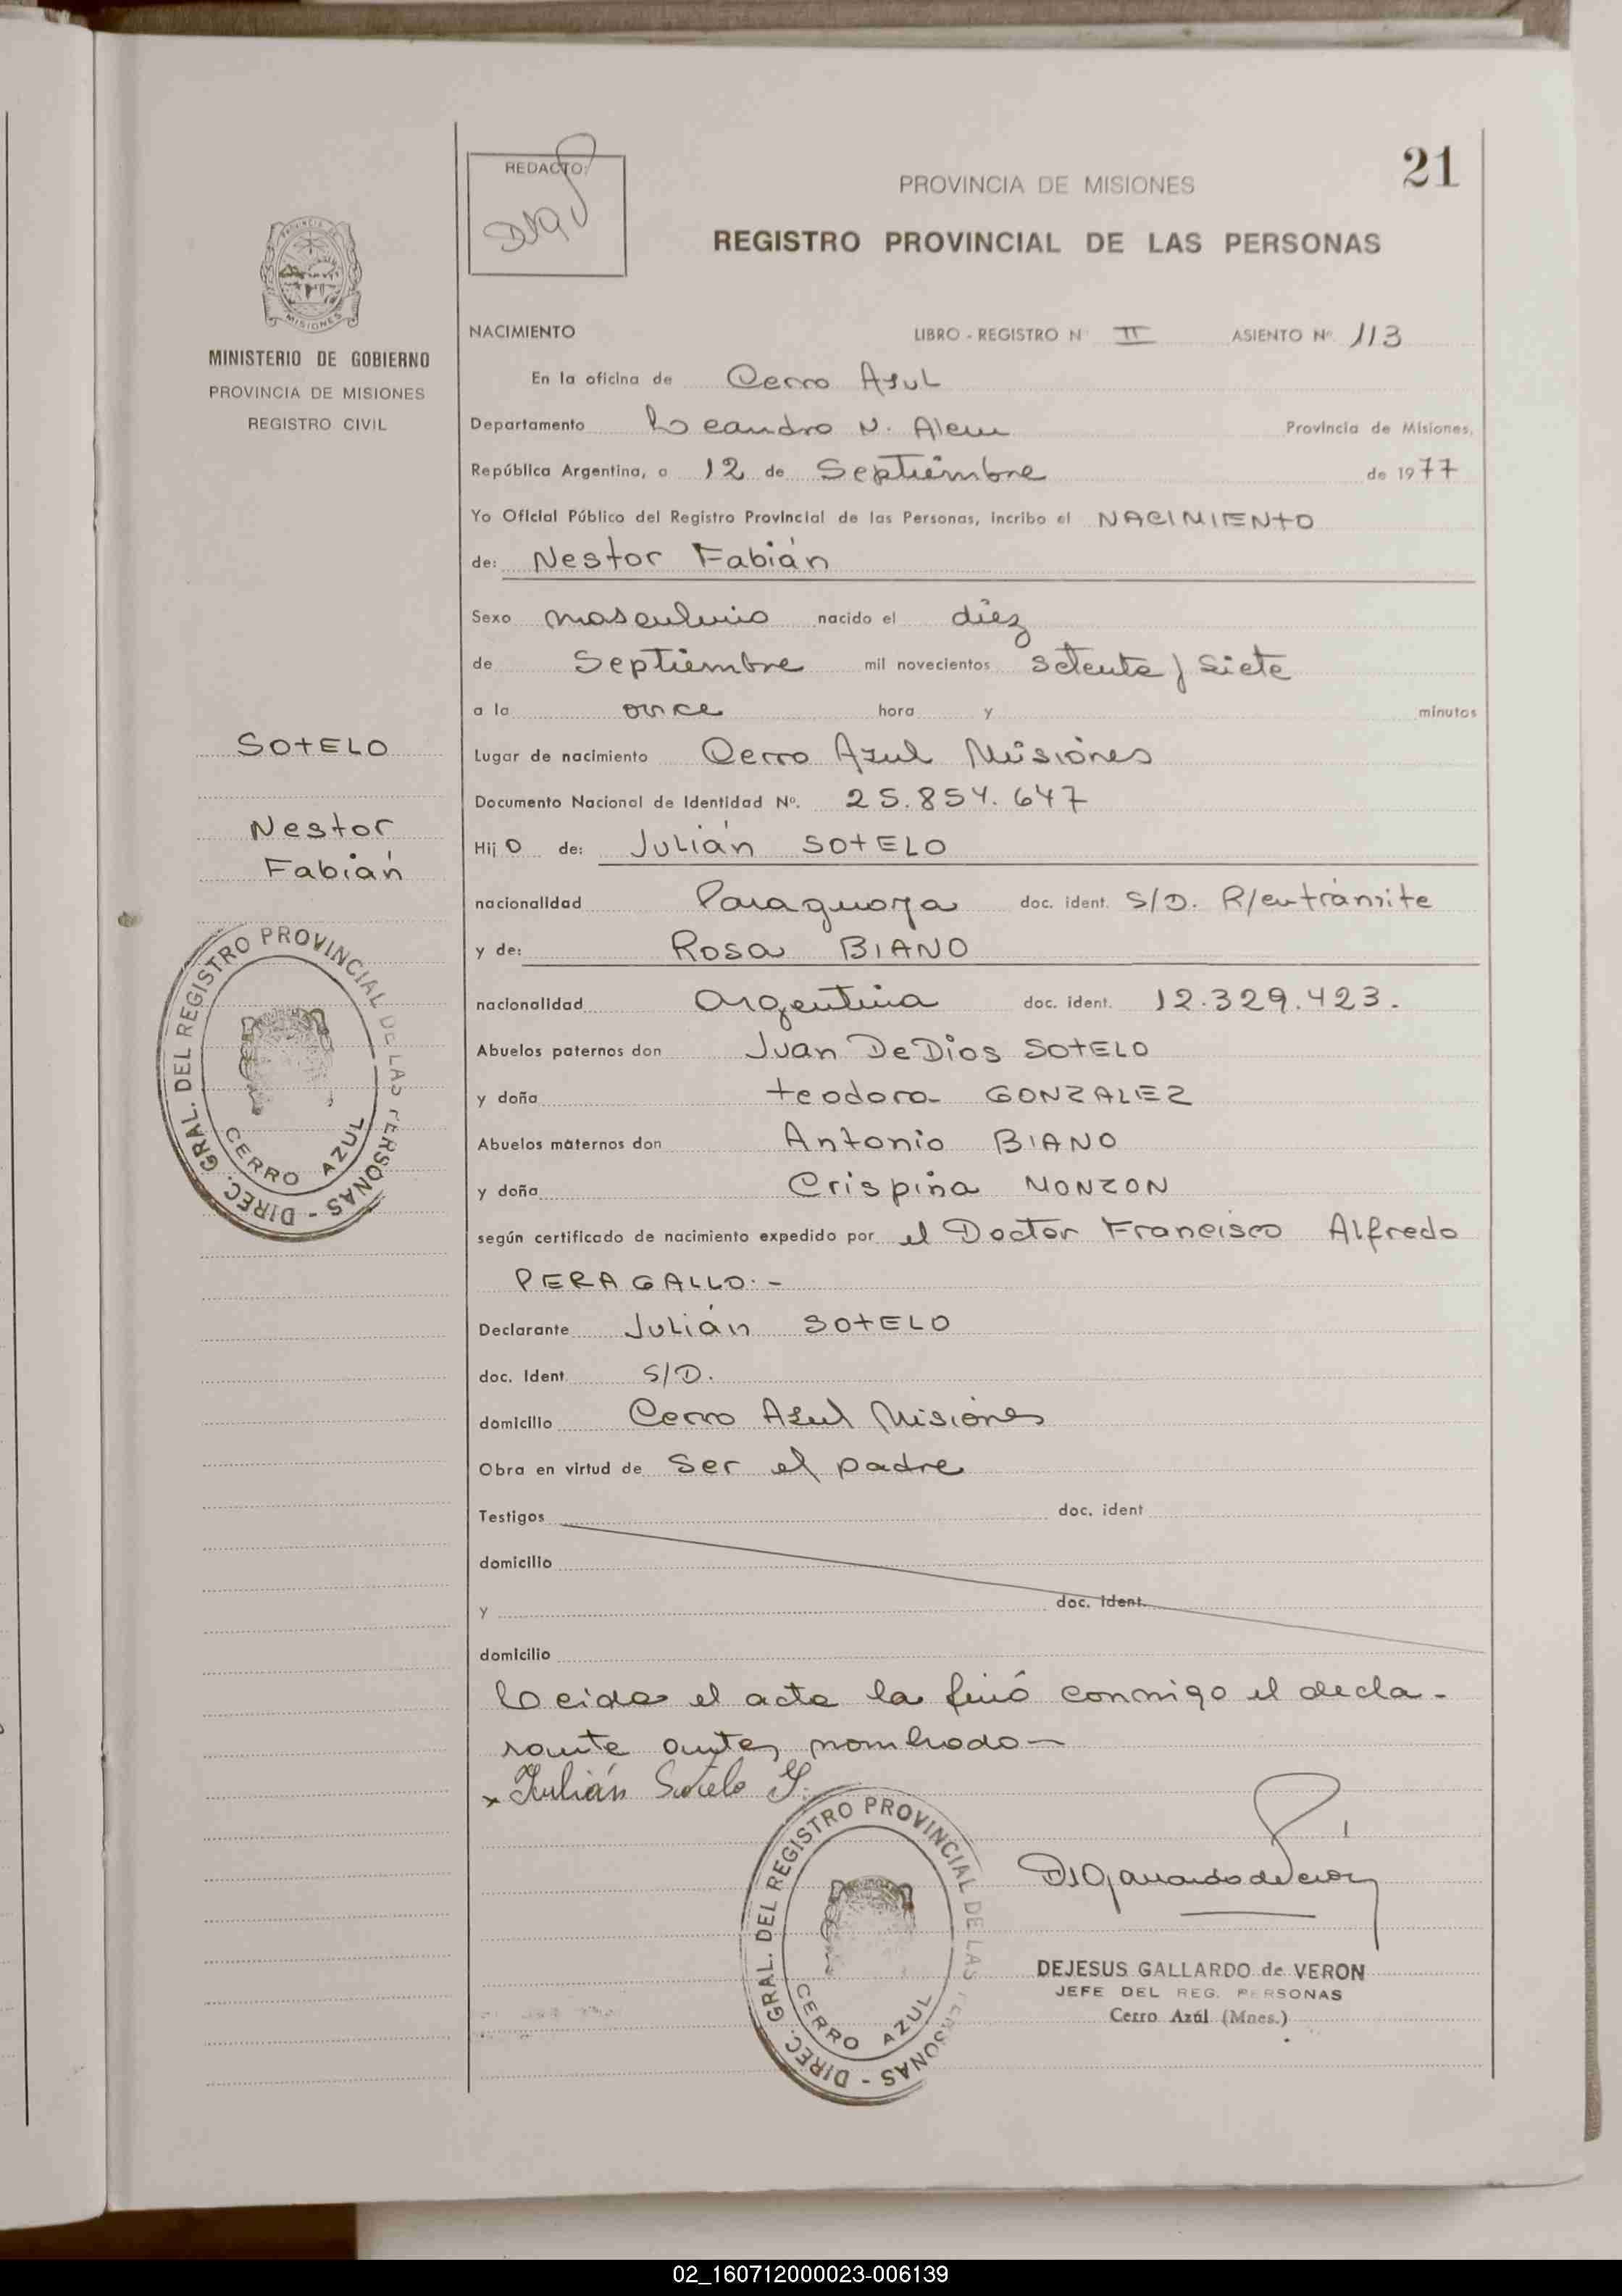 21
REDACTO:
PROVINCIA DE MISIONES
REGISTRO PROVINCIAL DE LAS PERSONAS
MISIONES
MINISTERIO DE GOBIERNO
PROVINCIA DE MISIONES
REGISTRO CIVIL
NACIMIENTO LIBRO - REGISTRO N° II ASIENTO Nº. 113
En la oficina de Cerro Azul
Departamento Leandro N. Alem Provincia de Misiones,
República Argentina, a 12 de Septiembre de 1977
Yo Oficial Público del Registro Provincial de las Personas, incribo el NACIMIENTO
de: Nestor Fabián
Sexo masculino nacido el diez
de Septiembre mil novecientos setenta y siete
a la once hora y minutos
Lugar de nacimiento Cerro Azul Misiones
Documento Nacional de Identidad Nº. 25.854.647
Hijo de: Julián SOTELO
nacionalidad Paraguaya doc. ident. S/D. R/en trámite
y de: Rosa BIANO
nacionalidad Argentina doc. ident. 12.329.423.
Abuelos paternos don Juan DeDios SOTELO
y doña Teodora GONZALEZ
Abuelos maternos don Antonio BIANO
y doña Crispina MONZON
según certificado de nacimiento expedido por el Doctor Francisco Alfredo
PERAGALLO.-
Declarante Julián SOTELO
doc. Ident S/D.
domicilio Cerro Azul Misiones
Obra en virtud de ser el padre
Testigos doc. ident
domicilio
y doc. ident.
domicilio
Leida el acta la firmó conmigo el decla-
rante antes nombrado
x Julián Sotelo G.
SOTELO
Nestor
Fabián
DIREC. GRAL. DEL REGISTRO PROVINCIAL DE LAS PERSONAS -
CERRO AZUL
DIREC. GRAL. DEL REGISTRO PROVINCIAL DE LAS PERSONAS -
CERRO AZUL
DEJESUS GALLARDO de VERON
JEFE DEL REG. PERSONAS
Cerro Azúl (Mnes.)
02_160712000023-006139